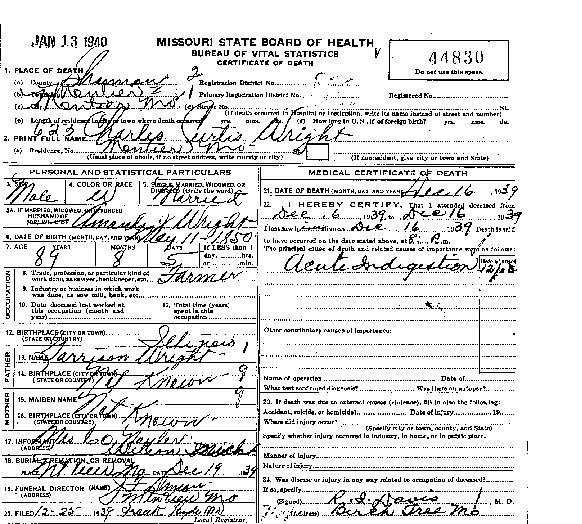 JAN 13 1940
MISSOURI STATE BOARD OF HEALTH
BUREAU OF VITAL STATISTICS
CERTIFICATE OF DEATH
44830
Do not use this space.
1. PLACE OF DEATH
(a) County Shannon 2 Registration District No.
Primary Registration District No. Registered No.
(If death occurred in Hospital or Institution, write its name instead of street and number)
(e) Length of residence in city or town where death occurred yrs. mos. ds. (f) How long in U.S., if of foreign birth? yrs. mos. ds.
2. PRINT FULL NAME Charles Curtis Wright
(a) Residence, No. Montier Mo
(Usual place of abode, if no street address, write county or city) (If nonresident, give city or town and State)
PERSONAL AND STATISTICAL PARTICULARS
3. SEX Male 4. COLOR OR RACE W 5. SINGLE, MARRIED, WIDOWED, OR DIVORCED (write the word) Married
5A. IF MARRIED, WIDOWED, OR DIVORCED HUSBAND OF (OR) WIFE OF Wright
6. DATE OF BIRTH (MONTH, DAY, AND YEAR) 11-1850
7. AGE YEARS 89 MONTHS 8 DAYS 5 If LESS than 1 day, hrs. or min.
OCCUPATION
8. Trade, profession, or particular kind of work done, sawyer, bookkeeper, etc. Farmer
9. Industry or business in which work was done, as saw mill, bank, etc.
10. Date deceased last worked at this occupation (month and year)
11. Total time (years) spent in this occupation
12. BIRTHPLACE (CITY OR TOWN) (STATE OR COUNTRY) Illinois 1
FATHER
13. NAME Harrison Wright
14. BIRTHPLACE (CITY OR TOWN) (STATE OR COUNTRY) Not Known 9
MOTHER
15. MAIDEN NAME Not K 9
16. BIRTHPLACE (CITY OR TOWN) (STATE OR COUNTRY) Known
17. INFORMANT Mrs.
(ADDRESS)
18. BURIAL, CREMATION, OR REMOVAL
PLACE Montier Mo DATE Dec 19 39
19. FUNERAL DIRECTOR (NAME)
(ADDRESS) Montier Mo
20. FILED 12-25-1939
Local Registrar
MEDICAL CERTIFICATE OF DEATH
21. DATE OF DEATH (MONTH, DAY AND YEAR) Dec 16, 1939
22. I HEREBY CERTIFY, That I attended deceased from
Dec 6 1939 to Dec 16, 1939
I last saw alive on Dec 16 1939 Death is said
to have occurred on the date stated above, at P. m.
The principal cause of death and related causes of importance were as follows:
Acute Indigestion
Other contributory causes of importance:
Name of operation Date of
What test confirmed diagnosis? Was there an autopsy?
23. If death was due to external causes (violence), fill in also the following:
Accident, suicide, or homicide? Date of injury 19
Where did injury occur?
(Specify city or town, county, and State)
Specify whether injury occurred in industry, in home, or in public place.
Manner of injury
Nature of injury
24. Was disease or injury in any way related to occupation of deceased?
If so, specify
(Signed) Davis, M. D.
(Address) Birch Tree Mo